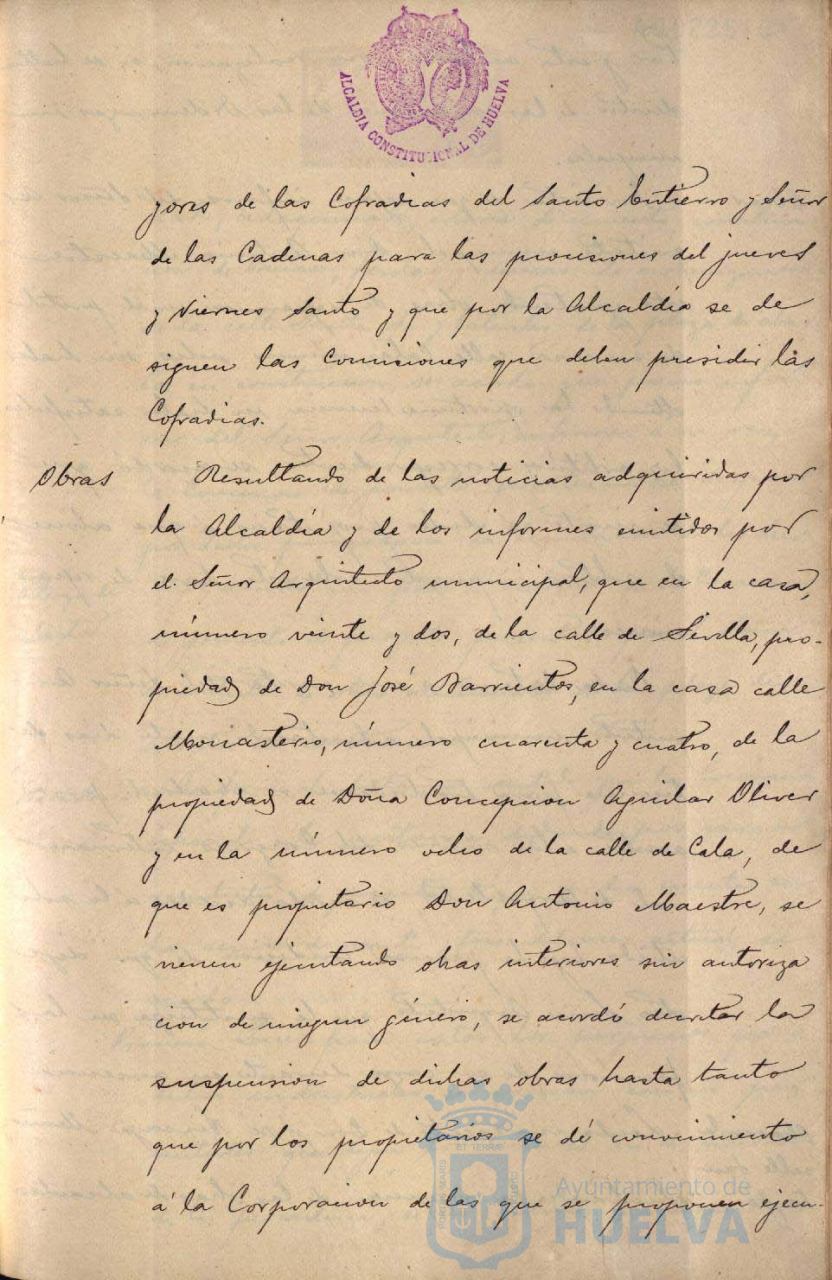 ALCALDIA CONSTITUCIONAL DE HUELVA
yores de las Cofradias del Santo Entierro y Señor
de las Cadenas para las procisiones del jueves
y Viernes Santo y que por la Alcaldía se de
signen las Comisiones que deben presidir las
Cofradias.
Obras
Resultando de las noticias adquiridas por
la Alcaldía y de los informes emitidos por
el Señor Arquitecto municipal, que en la casa,
número veinte y dos, de la calle de Sevilla, pro-
piedad de Don José Barrientos, en la casa calle
Monasterio, número cuarenta y cuatro, de la
propiedad de Doña Concepcion Aguilar Oliver
y en la número ocho de la calle de Cala, de
que es propietario Don Antonio Maestre, se
vienen ejecutando obras interiores sin autoriza
cion de ningun género, se acordó decretar la
suspension de dichas obras hasta tanto
que por los propietarios se dé conocimiento
á la Corporacion de las que se proponen ejecu-
Ayuntamiento de
HUELVA